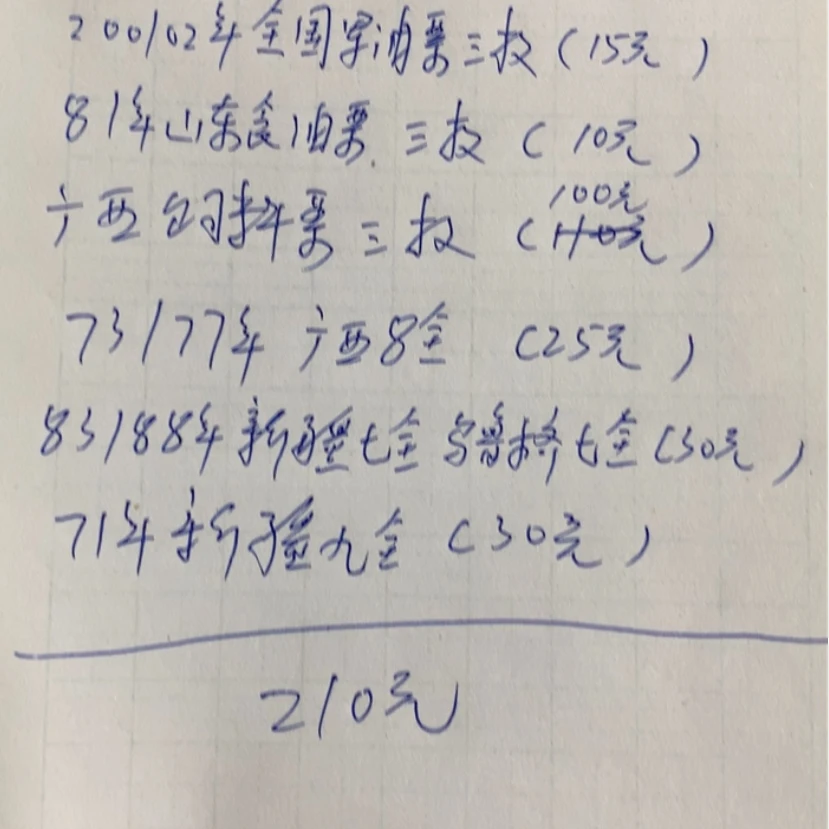 200/02年全国军油票三枚(15元)
81年山东食油票.三枚(10元)
广西饲料票三枚(100元)
73/77年广西8全(25元)
83/88年新疆七全乌鲁木齐七全(30元)
71年新疆九全(30元)
210元